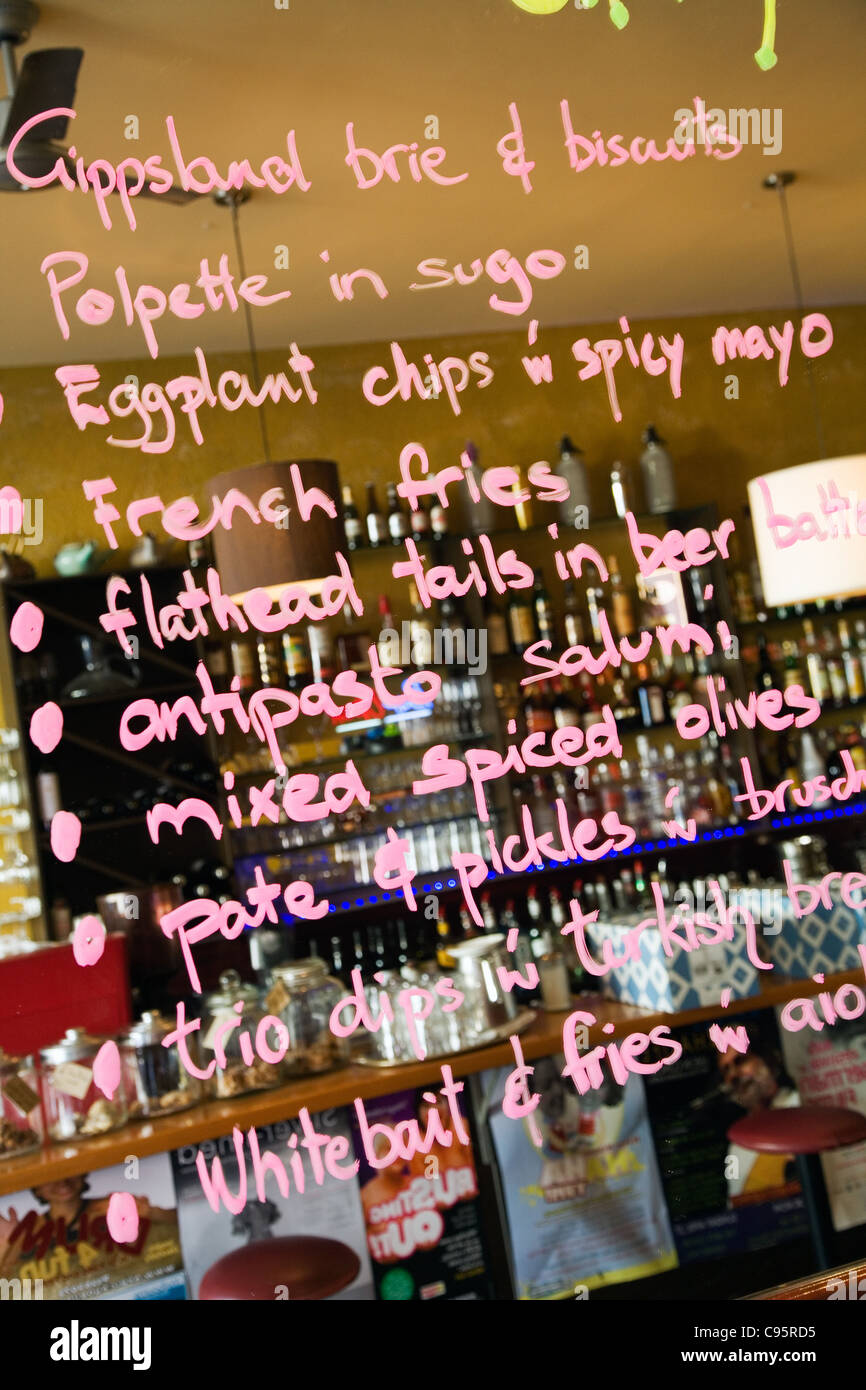 Gippsland brie & biscuits
Polpette in sugo
Eggplant chips w spicy mayo
French fries
• flathead tails in beer batte
• antipasto salumi
• mixed spiced olives
• pate & pickles w brusch
• trio dips w turkish bre
• Whitebait & fries w aiol
RUSTING
OUT
alamy
Image ID: C95RD5
www.alamy.com